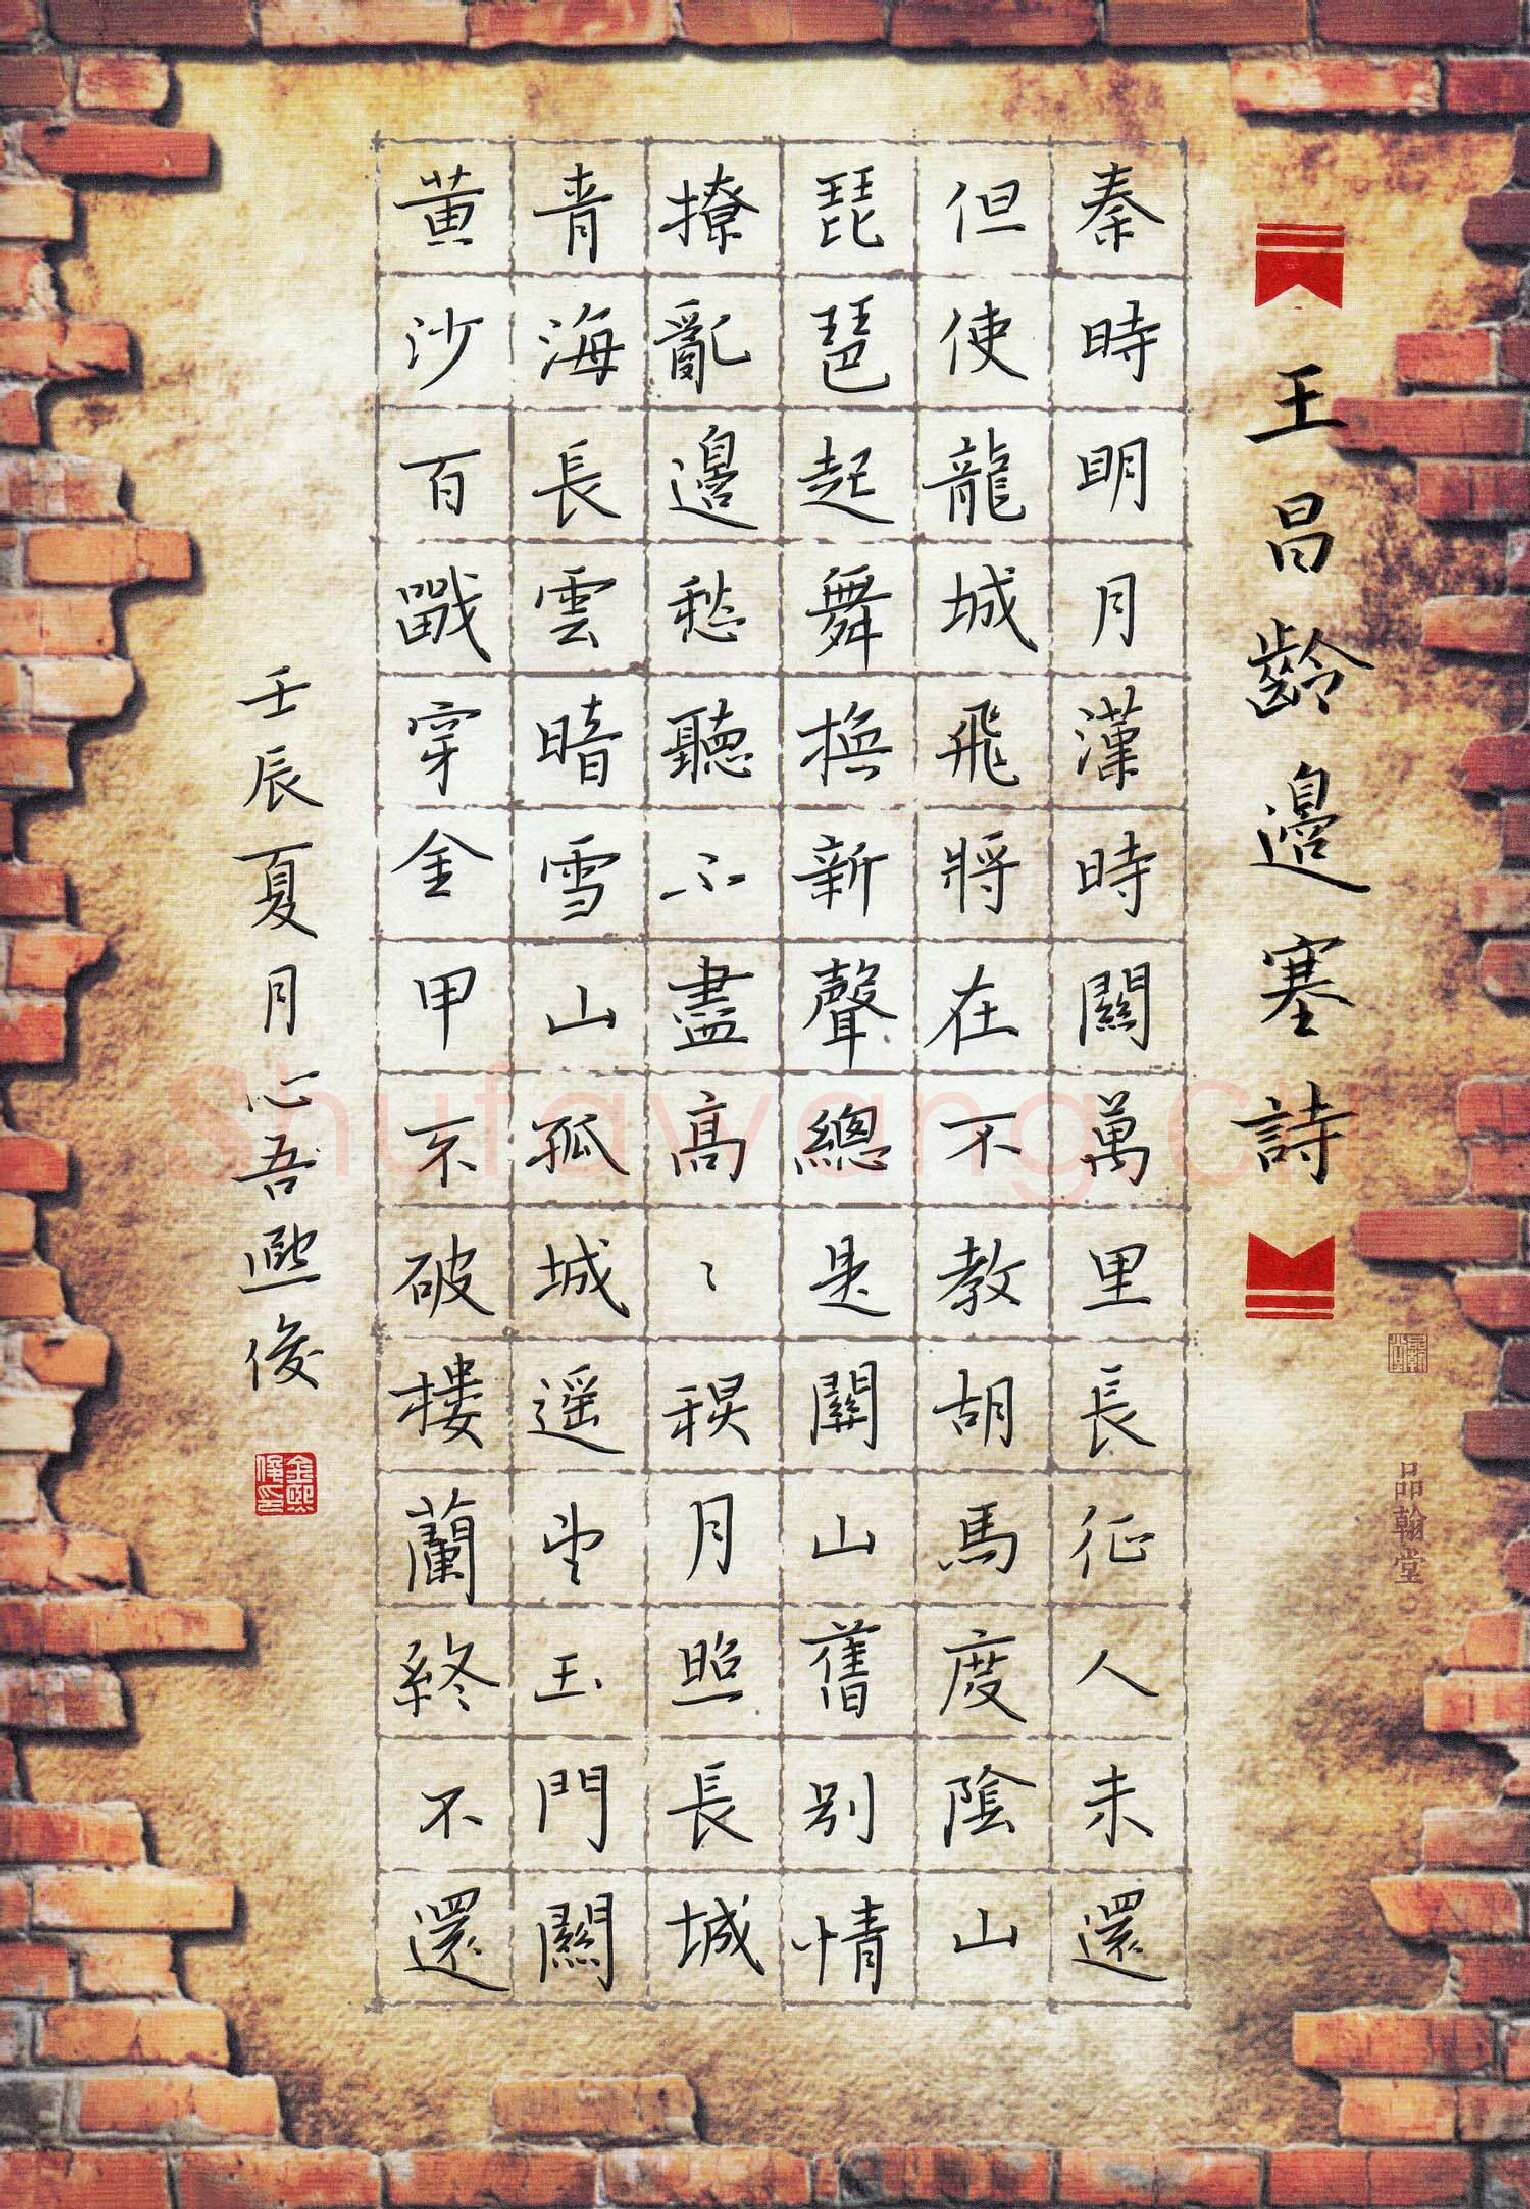 王昌齡邊塞詩
秦時明月漢時關萬里長征人未還
但使龍城飛將在不教胡馬度陰山
琵琶起舞換新聲總是關山舊別情
撩亂邊愁聽不盡高〻秋月照長城
青海長雲暗雪山孤城遥望玉門關
黄沙百戰穿金甲不破樓蘭終不還
壬辰夏月心吾熙俊
金熙俊印
品翰堂
shufawang.cn